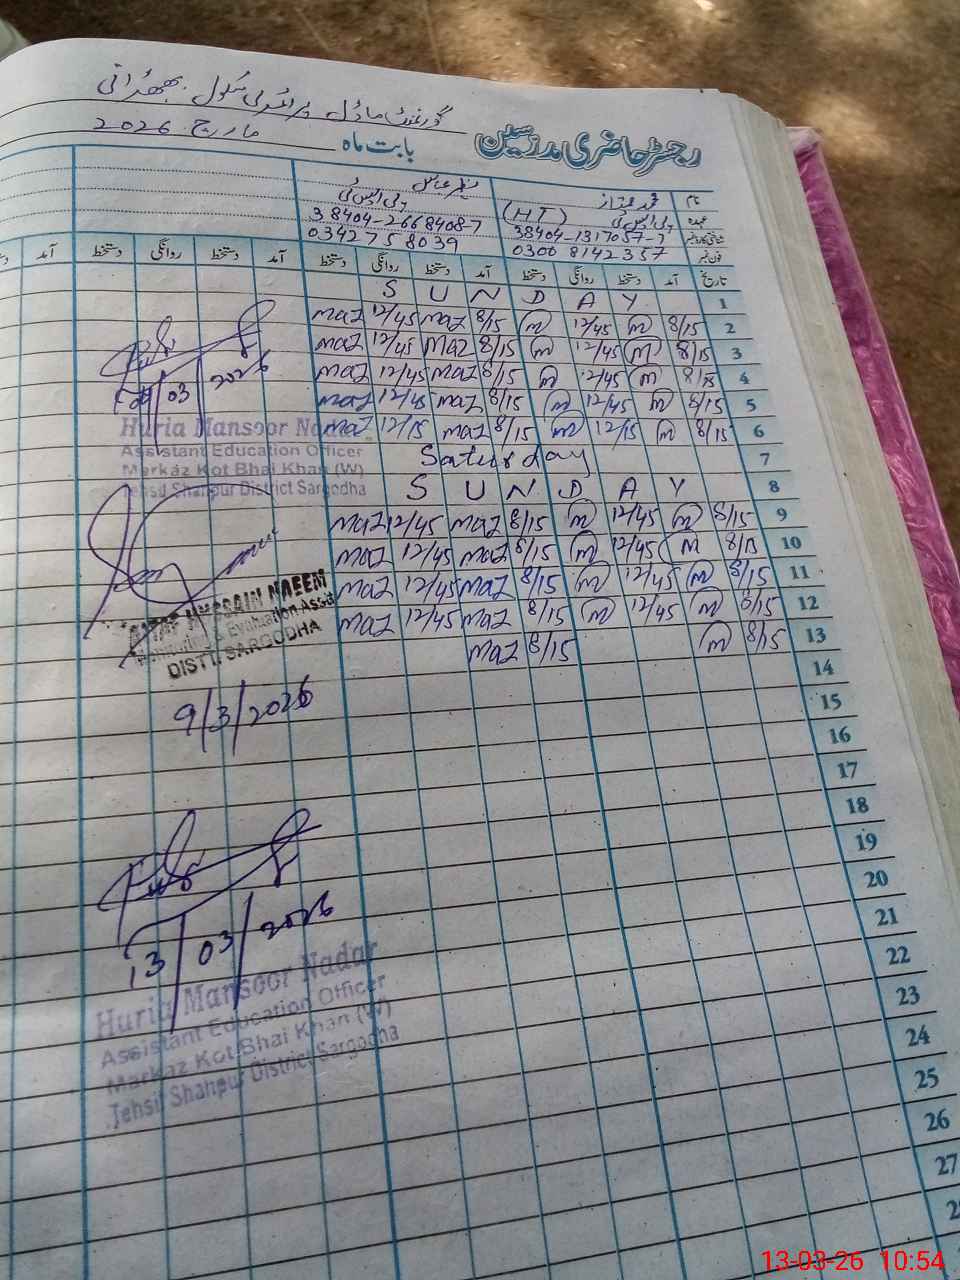 گورنمنٹ ماڈل پرائمری سکول بھھرانی
رجسٹر حاضری مدرسین
بابت ماہ مارچ 2026
نام محمد ممتاز
عہدہ پی ایس ٹی (HT) پی ایس ٹی
شناختی کارڈ نمبر 38404-1317057-7 38404-2668408-7
فون نمبر 0300 8142357 0342758039
تاریخ آمد دستخط روانگی دستخط آمد دستخط روانگی دستخط آمد دستخط روانگی دستخط آمد
1 S U N D A Y
2 8/15 m 12/45 m 8/15 maz 12/45 maz
3 8/15 m 12/45 m 8/15 maz 12/45 maz
4 8/15 m 12/45 m 8/15 maz 12/45 maz
5 8/15 m 12/45 m 8/15 maz 12/45 maz
6 8/15 m 12/15 m 8/15 maz 12/15 maz
7 Saturday
8 S U N D A Y
9 8/15 m 12/45 m 8/15 maz 12/45 maz
10 8/15 m 12/45 m 8/15 maz 12/45 maz
11 8/15 m 12/45 m 8/15 maz 12/45 maz
12 8/15 m 12/45 m 8/15 maz 12/45 maz
13 8/15 m 8/15 maz
14
15
16
17
18
19
20
21
22
23
24
25
26
27
03/2026
Huria Mansoor Nadar
Assistant Education Officer
Markaz Kot Bhai Khan (W)
Tehsil Shahpur District Sargodha
ALTAF HUSSAIN NAEEM
Monitoring & Evaluation Assit
DISTT. SARGODHA
9/3/2026
13/03/2026
Huria Mansoor Nadar
Assistant Education Officer
Markaz Kot Bhai Khan (W)
Tehsil Shahpur District Sargodha
13-03-26 10:54